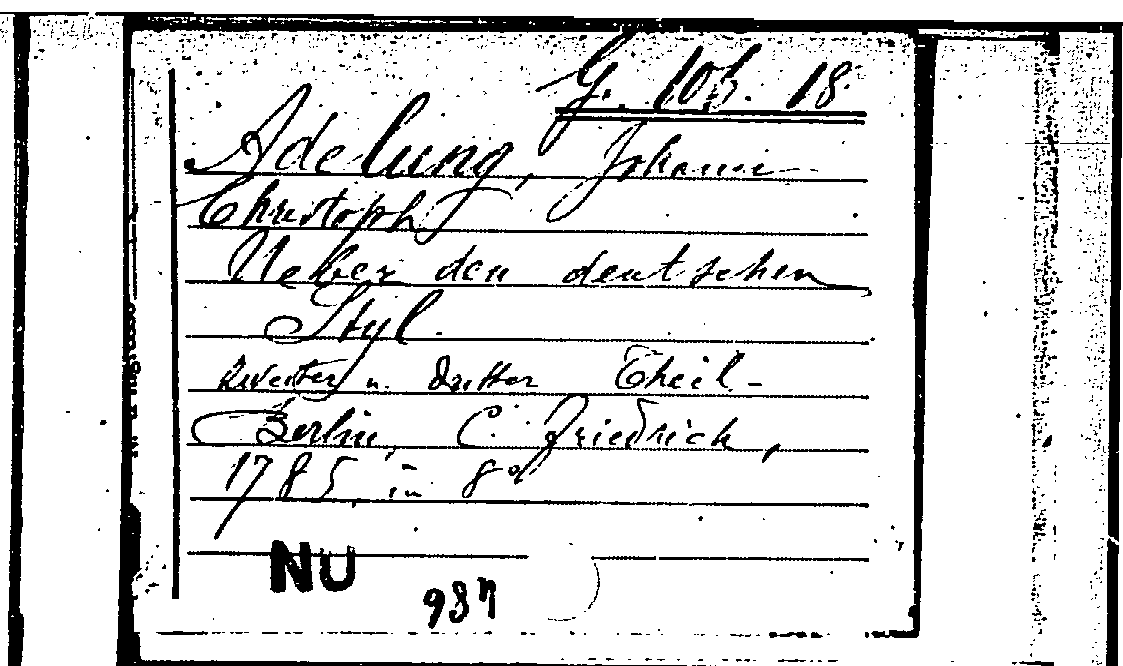 G. 10b. 18
Adelung, Johann
Christoph
Ueber den deutschen
Styl.
Zweiter u. dritter Theil-
Berlin, C. Friedrich,
1785, in 8°
NU
937